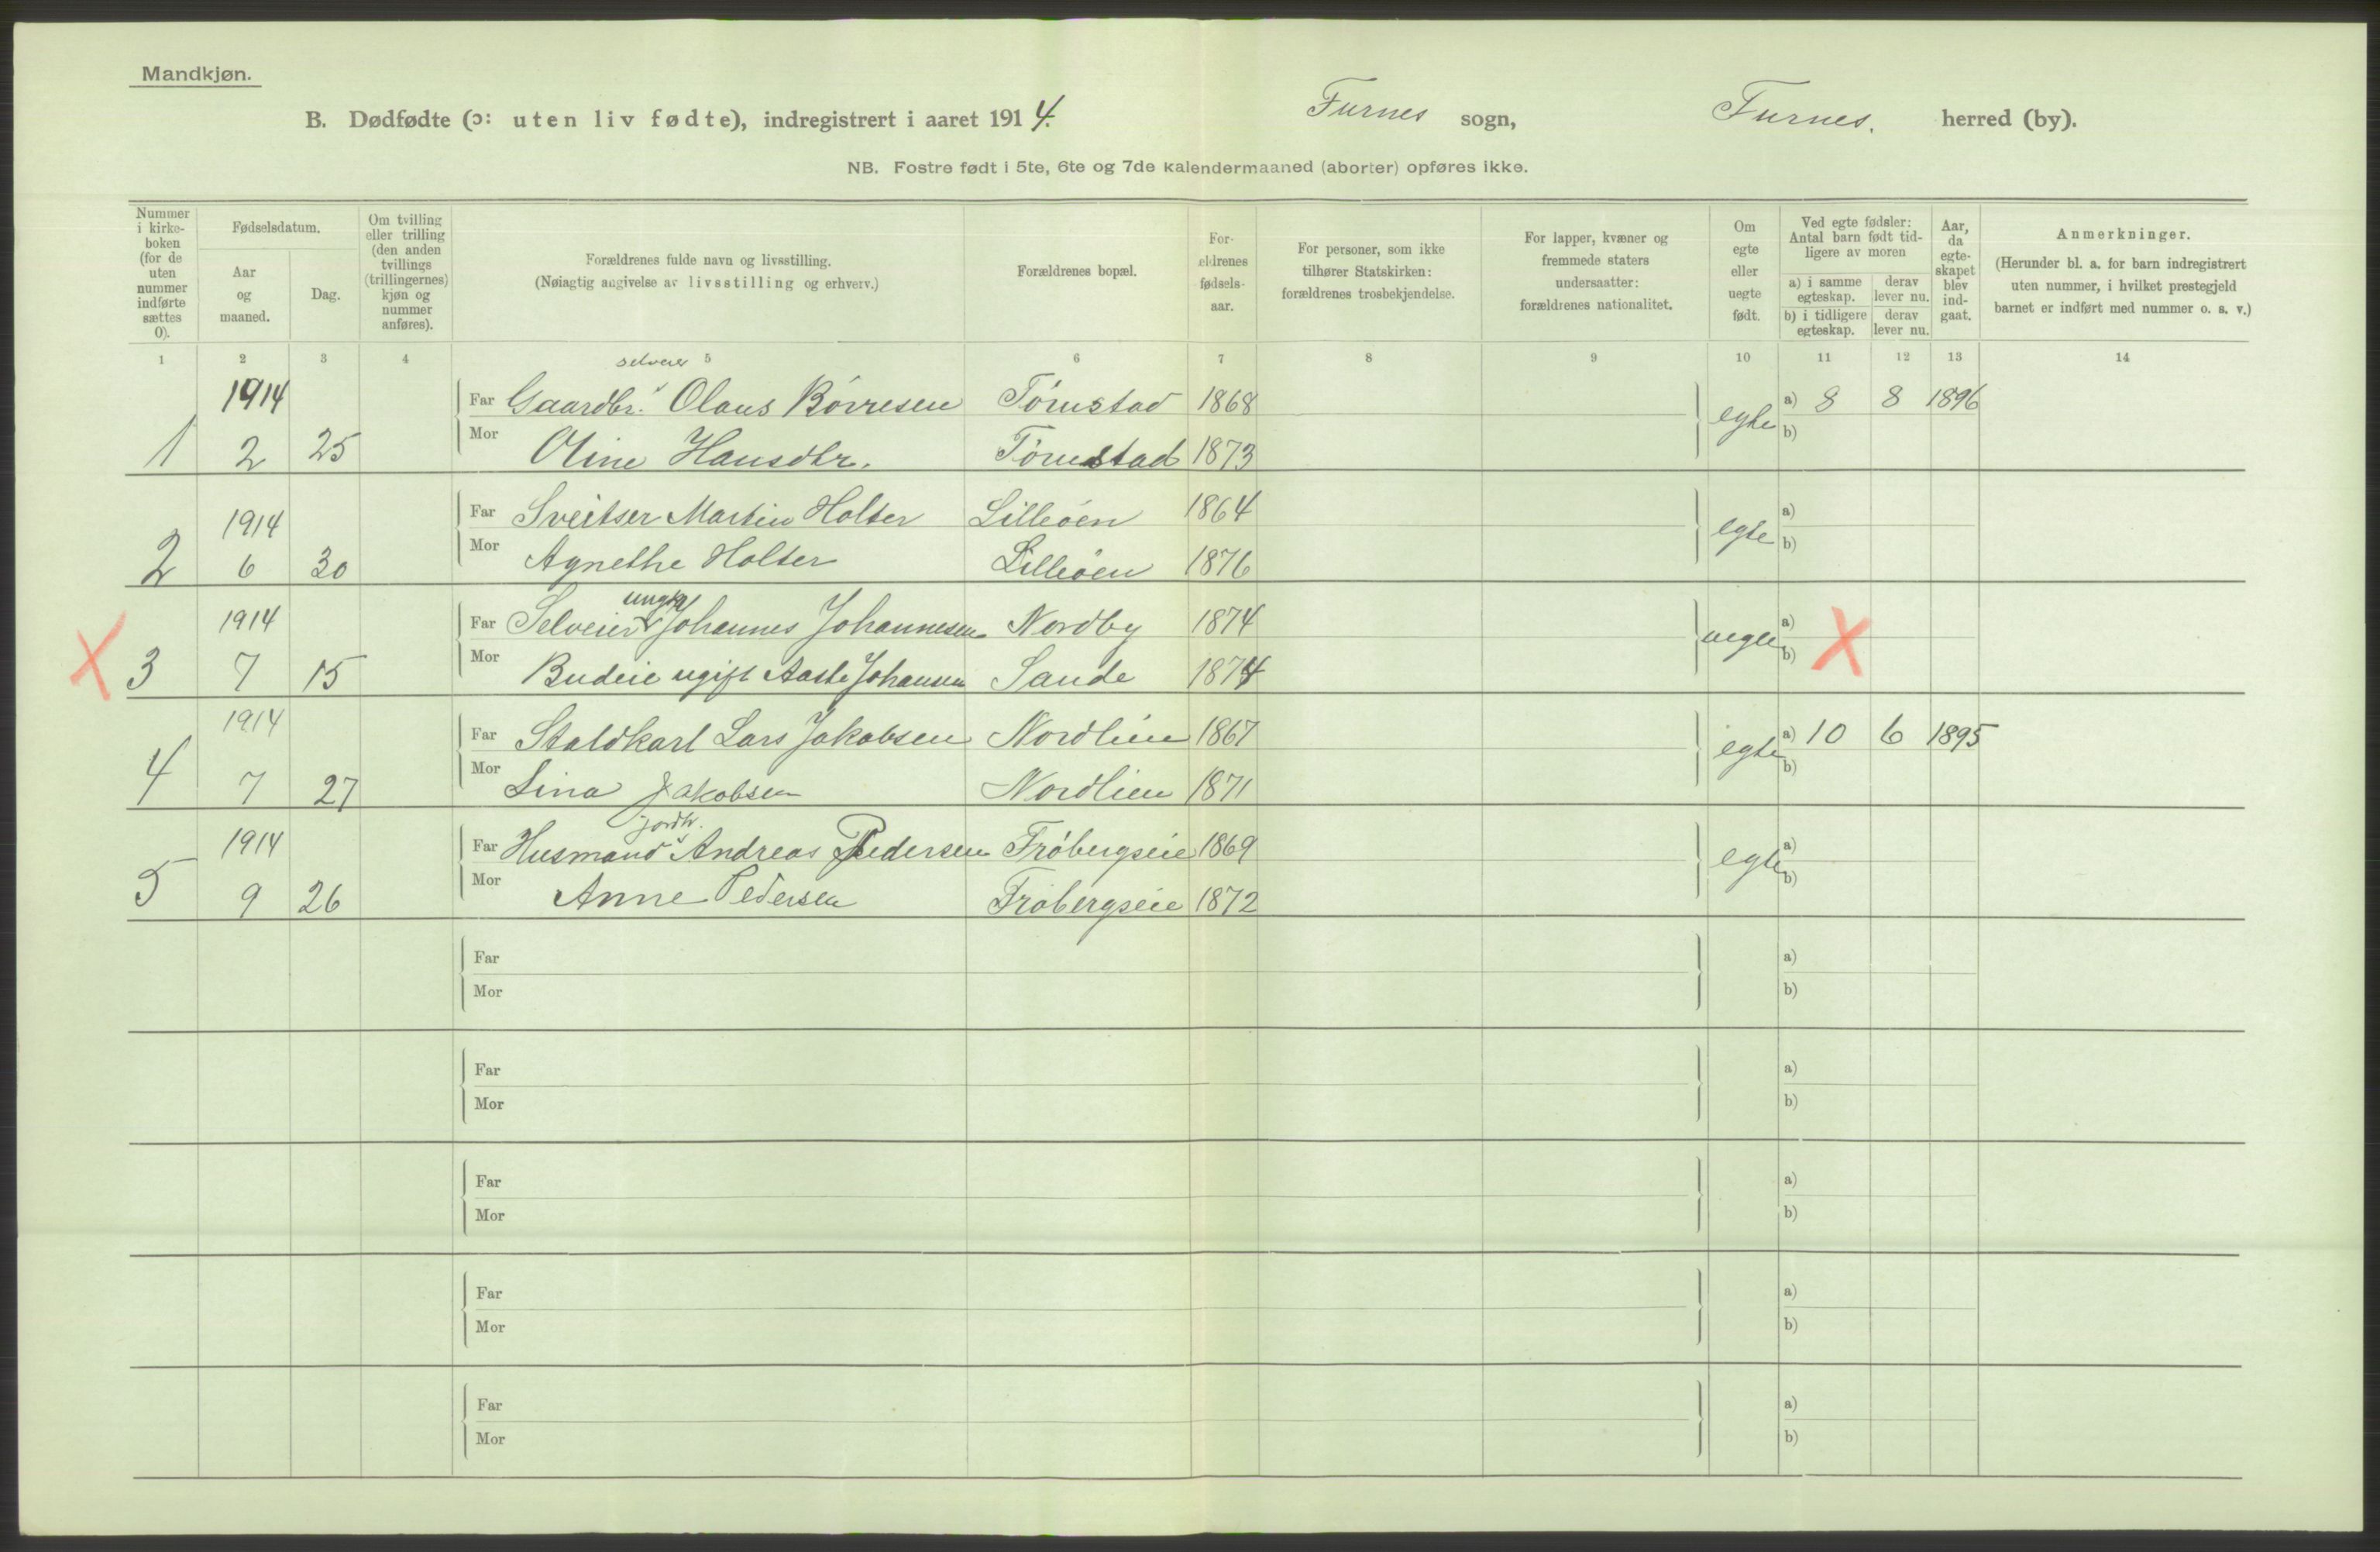 Mandkjøn.
B. Dødfødte (ɔ: uten liv fødte), indregistrert i aaret 1914. Furnes sogn, Furnes. herred (by).
NB. Fostre født i 5te, 6te og 7de kalendermaaned (aborter) opføres ikke.
Nummer i kirkeboken (for de uten nummer indførte sættes 0).
Fødselsdatum.
Aar og maaned.
Dag.
Om tvilling eller trilling (den anden tvillings (trillingernes) kjøn og nummer anføres).
Forældrenes fulde navn og livsstilling.
(Nøiagtig angivelse av livsstilling og erhverv.)
Forældrenes bopæl.
Forældrenes fødselsaar.
For personer, som ikke tilhører Statskirken: forældrenes trosbekjendelse.
For lapper, kvæner og fremmede staters undersaatter: forældrenes nationalitet.
Om egte eller uegte født.
Ved egte fødsler: Antal barn født tidligere av moren
a) i samme egteskap. derav lever nu.
b) i tidligere egteskap. derav lever nu.
Aar, da egteskapet blev indgaat.
Anmerkninger.
(Herunder bl. a. for barn indregistrert uten nummer, i hvilket prestegjeld barnet er indført med nummer o. s. v.)
1 2 3 4 5 6 7 8 9 10 11 12 13 14
selveier
1914 Far Gaardbr. Olaus Børresen Tømstad 1868 egte a) 8 8 1896
1 2 25 Mor Oline Hansdtr. Tømstad 1873 b)
1914 Far Sveitser Martin Holter Lilleøen 1864 egte a)
2 6 30 Mor Agnethe Holter Lilleøen 1876 b)
ungk
X 1914 Far Selveier Johannes Johannesen Nordby 1874 uegte a) X
3 7 15 Mor Budeie ugift Johansen Sande 1874 b)
1914 Far Staldkarl Lars Jakobsen Nordlien 1867 egte a) 10 6 1895
4 7 27 Mor Lina Jakobsen Nordlien 1871 b)
jordbr.
1914 Far Husmand Andreas Pedersen Frøbergseie 1869 egte a)
5 9 26 Mor Anne Pedersen Frøbergseie 1872 b)
Far a)
Mor b)
Far a)
Mor b)
Far a)
Mor b)
Far a)
Mor b)
Far a)
Mor b)